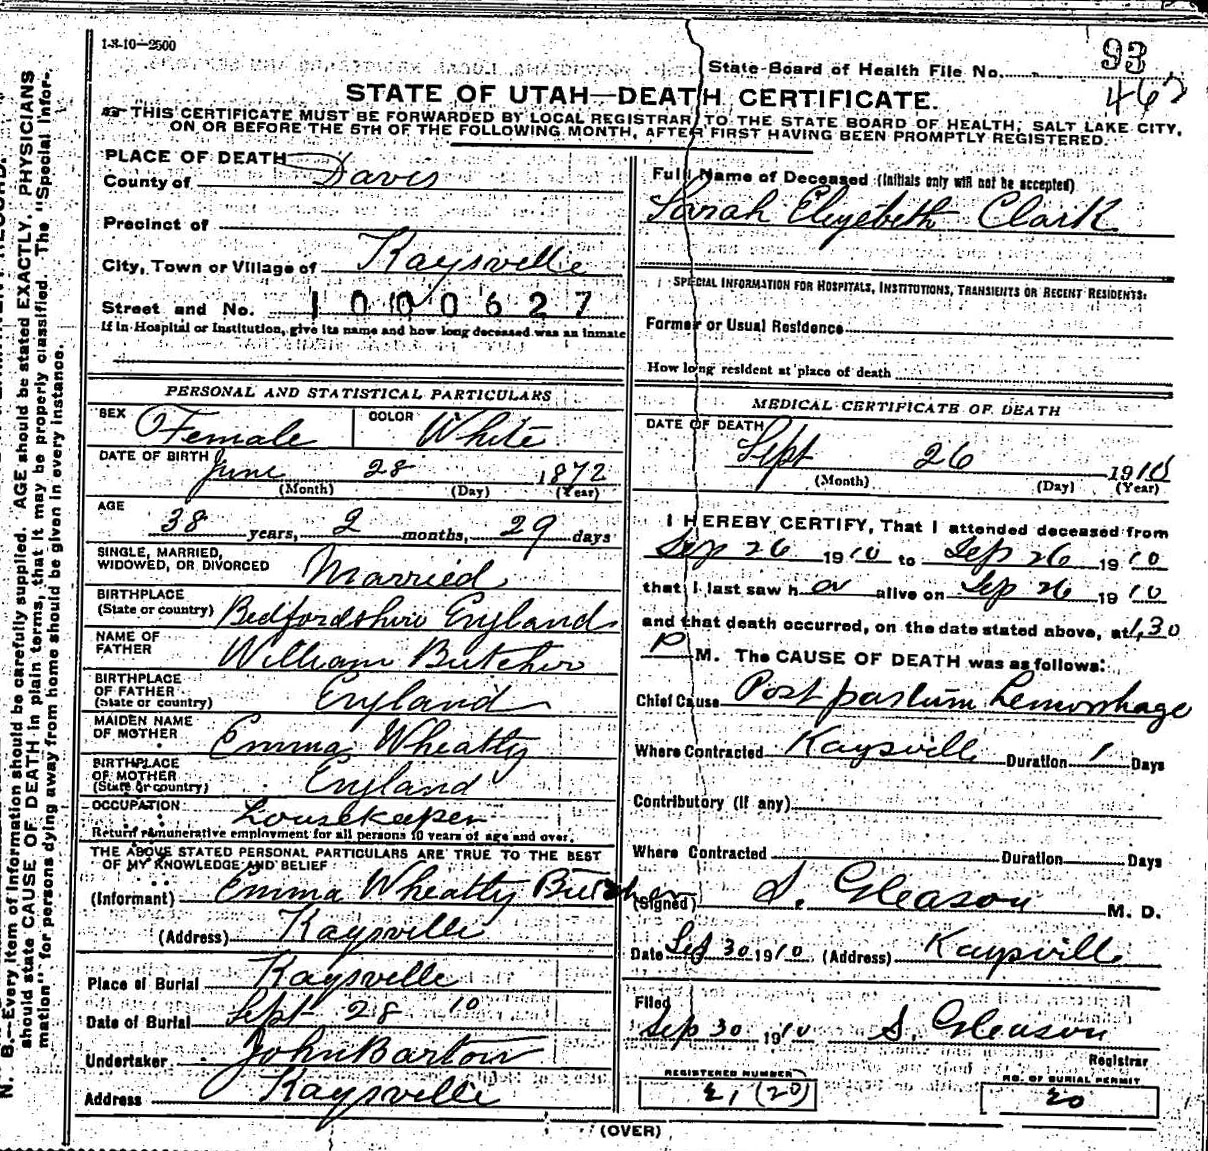 1-3-10—2500
State Board of Health File No. 93
462
STATE OF UTAH—DEATH CERTIFICATE.
THIS CERTIFICATE MUST BE FORWARDED BY LOCAL REGISTRAR TO THE STATE BOARD OF HEALTH, SALT LAKE CITY,
ON OR BEFORE THE 5TH OF THE FOLLOWING MONTH, AFTER FIRST HAVING BEEN PROMPTLY REGISTERED.
PLACE OF DEATH
County of Davis
Precinct of
City, Town or Village of Kaysville
Street and No. 1000627
If in Hospital or Institution, give its name and how long deceased was an inmate
PERSONAL AND STATISTICAL PARTICULARS
SEX Female COLOR White
DATE OF BIRTH June 28 1872
(Month) (Day) (Year)
AGE
38 years, 2 months, 29 days
SINGLE, MARRIED,
WIDOWED, OR DIVORCED Married
BIRTHPLACE
(State or country) Bedfordshire England
NAME OF
FATHER William Butcher
BIRTHPLACE
OF FATHER
(State or country) England
MAIDEN NAME
OF MOTHER Emma Wheatly
BIRTHPLACE
OF MOTHER
(State or country) England
OCCUPATION Housekeeper
Return remunerative employment for all persons 10 years of age and over.
THE ABOVE STATED PERSONAL PARTICULARS ARE TRUE TO THE BEST
OF MY KNOWLEDGE AND BELIEF
(Informant) Emma Wheatly Butcher
(Address) Kaysville
Place of Burial Kaysville
Date of Burial Sept 28 10
Undertaker John Barton
Address Kaysville
Full Name of Deceased (Initials only will not be accepted)
Sarah Elizebeth Clark
SPECIAL INFORMATION FOR HOSPITALS, INSTITUTIONS, TRANSIENTS OR RECENT RESIDENTS:
Former or Usual Residence
How long resident at place of death
MEDICAL CERTIFICATE OF DEATH
DATE OF DEATH
Sept 26 1910
(Month) (Day) (Year)
I HEREBY CERTIFY, That I attended deceased from
Sep 26 1910 to Sep 26 1910
that I last saw h er alive on Sep 26 1910
and that death occurred, on the date stated above, at 1,30
P M. The CAUSE OF DEATH was as follows:
Chief Cause Post partum hemorrhage
Where Contracted Kaysville Duration 1 Days
Contributory (if any)
Where Contracted Duration Days
(Signed) S. Gleason M. D.
Date Sep 30 1910 (Address) Kaysville
Filed
Sep 30 1910 S. Gleason
Registrar
REGISTERED NUMBER
21 (20)
NO. OF BURIAL PERMIT
20
(OVER)
N. B.—Every item of information should be carefully supplied. AGE should be stated EXACTLY. PHYSICIANS
should state CAUSE OF DEATH in plain terms, that it may be properly classified. The "Special Infor-
mation" for persons dying away from home should be given in every instance.